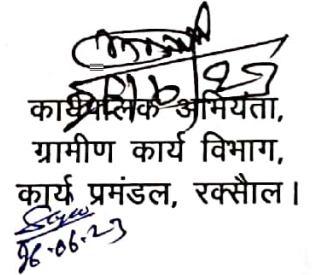 कार्यपालक अभियंता,
ग्रामीण कार्य विभाग,
कार्य प्रमंडल, रक्सौल।
16.06.23